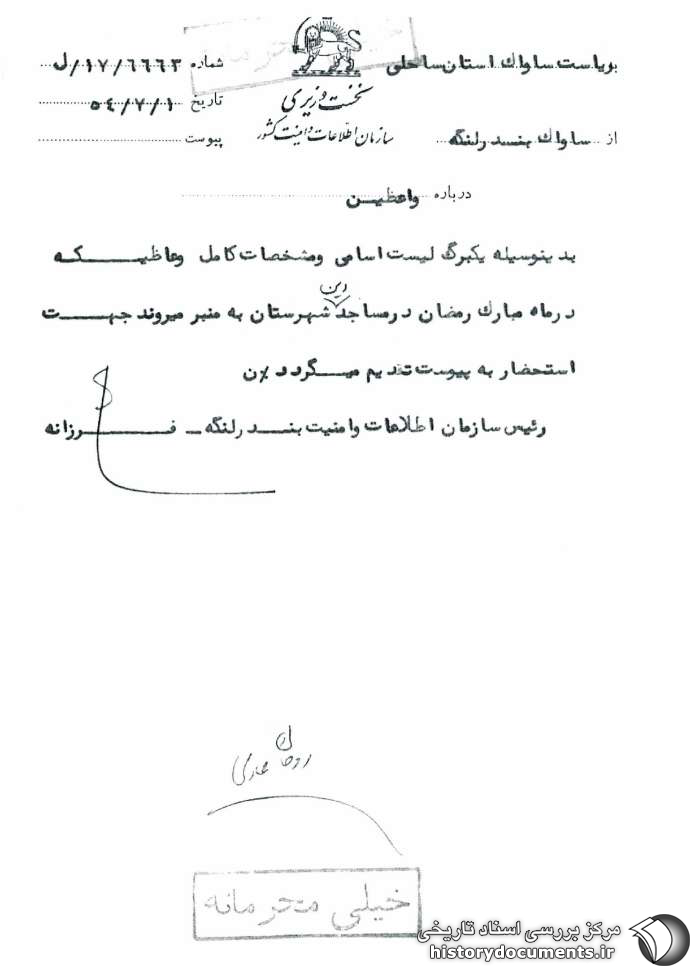 خیلی محرمانه
بریاست ساواك استان ساحلی
شماره ۱۷/٦٦٦۳/ل
نخست وزیری
تاریخ ٥٤/۷/۱
از ساواك بندرلنگه
سازمان اطلاعات و امنیت کشور
پیوست
درباره واعظین
بدینوسیله یکبرگ لیست اسامی ومشخصات کامل وعاظیکه
درماه مبارك رمضان درمساجد این شهرستان به منبر میروند جهت
استحضار به پیوست تقدیم میگردد
رئیس سازمان اطلاعات وامنیت بندرلنگه - فرزانه
خیلی محرمانه
مرکز بررسی اسناد تاریخی
historydocuments.ir